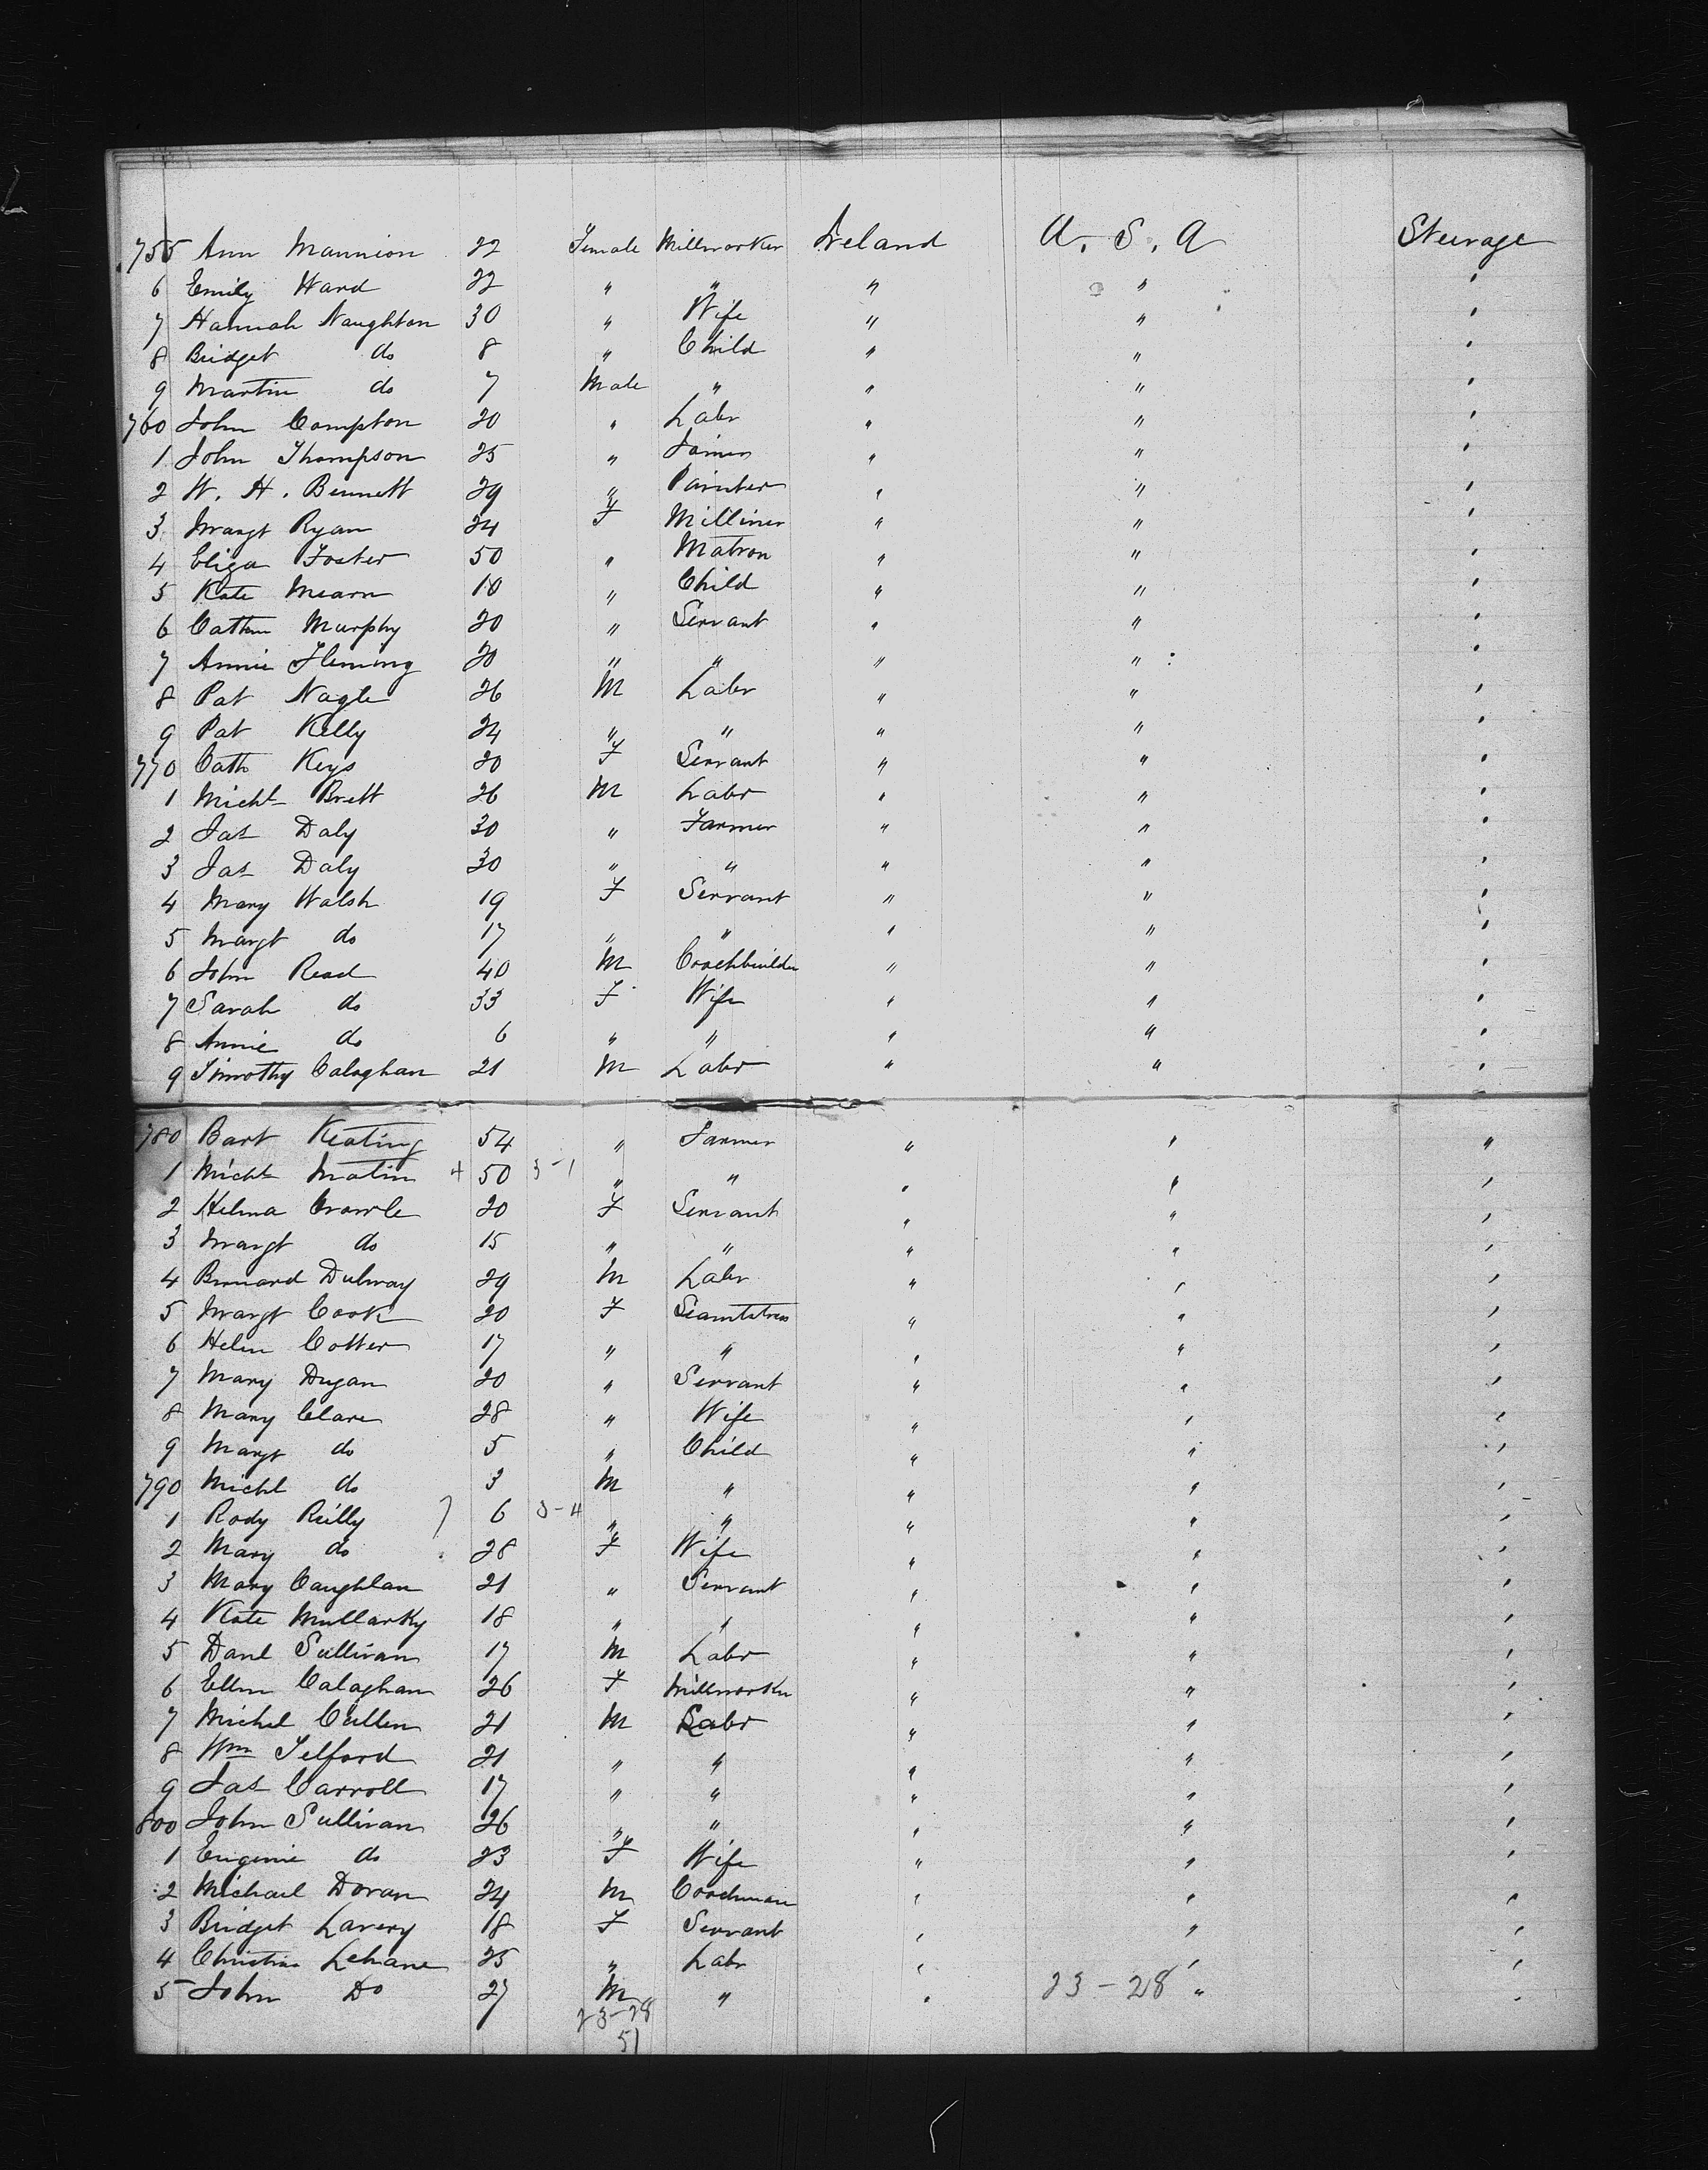 755 Ann Mannion 22 Female Millworker Ireland U. S. A Steerage
6 Emily Ward 22 " " " " "
7 Hannah Naughton 30 " Wife " " "
8 Bridget do 8 " Child " " "
9 Martin do 7 Male " " " "
760 John Compton 20 " Labr " " "
1 John Thompson 25 " Joiner " " "
2 W. H. Bennett 29 " Painter " " "
3 Margt Ryan 24 F Milliner " " "
4 Eliza Foster 50 " Matron " " "
5 Kate Mearn 10 " Child " " "
6 Cathn Murphy 20 " Servant " " "
7 Annie Fleming 20 " " " " "
8 Pat Nagle 26 M Labr " " "
9 Pat Kelly 24 " " " " "
770 Cath Keys 20 F Servant " " "
1 Michl Brett 26 M Labr " " "
2 Jas Daly 30 " Farmer " " "
3 Jas Daly 30 " " " " "
4 Mary Walsh 19 F Servant " " "
5 Margt do 17 " " " " "
6 John Read 40 M Coachbuilder " " "
7 Sarah do 33 F Wife " " "
8 Annie do 6 " " " " "
9 Timothy Calaghan 21 M Labr " " "
780 Bart Keating 54 " Farmer " " "
1 Michl Matin 4 50 3-1 " " " " "
2 Helma Crowle 20 F Servant " " "
3 Margt do 15 " " " " "
4 Bernard Dulway 29 M Labr " " "
5 Margt Cook 20 F Seamtstress " " "
6 Helen Cotter 17 " " " " "
7 Mary Dugan 20 " Servant " " "
8 Mary Clare 28 " Wife " " "
9 Margt do 5 " Child " " "
790 Michl do 3 M " " " "
1 Rody Reilly 7 6 3-4 " " " " "
2 Mary do 28 F Wife " " "
3 Mary Caughlan 21 " Servant " " "
4 Kate Mullarky 18 " " " " "
5 Danl Sullivan 17 M Labr " " "
6 Ellen Calaghan 26 F Millworker " " "
7 Michel Cullen 21 M Labr " " "
8 Wm Telford 21 " " " " "
9 Jas Carroll 17 " " " " "
800 John Sullivan 26 " " " " "
1 Eugenie do 23 F Wife " " "
2 Michael Doran 24 M Coachman " " "
3 Bridget Lavery 18 F Servant " " "
4 Christina Lehane 25 " Labr " " "
5 John Do 27 M " " 23-28 " "
23-28
51